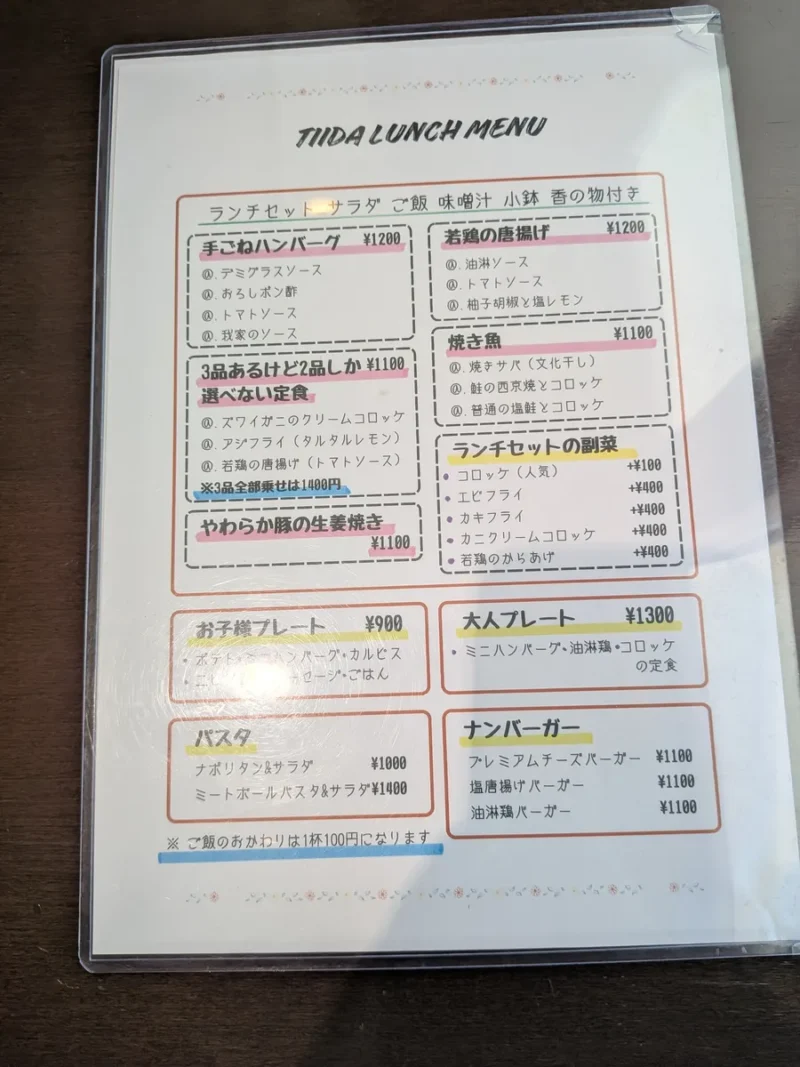 TIIDA LUNCH MENU
ランチセット サラダ ご飯 味噌汁 小鉢 香の物付き
手ごねハンバーグ ¥1200
@.デミグラスソース
@.おろしポン酢
@.トマトソース
@.我家のソース
3品あるけど2品しか ¥1100
選べない定食
@.ズワイガニのクリームコロッケ
@.アジフライ（タルタルレモン）
@.若鶏の唐揚げ（トマトソース）
※3品全部乗せは1400円
やわらか豚の生姜焼き
¥1100
若鶏の唐揚げ ¥1200
@.油淋ソース
@.トマトソース
@.柚子胡椒と塩レモン
焼き魚 ¥1100
@.焼きサバ（文化干し）
@.鮭の西京焼とコロッケ
@.普通の塩鮭とコロッケ
ランチセットの副菜
• コロッケ（人気） +¥100
• エビフライ +¥400
• カキフライ +¥400
• カニクリームコロッケ +¥400
• 若鶏のからあげ +¥400
お子様プレート ¥900
• ポテト・ミニハンバーグ・カルピス
セージ・ごはん
大人プレート ¥1300
• ミニハンバーグ・油淋鶏・コロッケ
の定食
パスタ
ナポリタン&サラダ ¥1000
ミートボールパスタ&サラダ ¥1400
ナンバーガー
プレミアムチーズバーガー ¥1100
塩唐揚げバーガー ¥1100
油淋鶏バーガー ¥1100
※ ご飯のおかわりは1杯100円になります